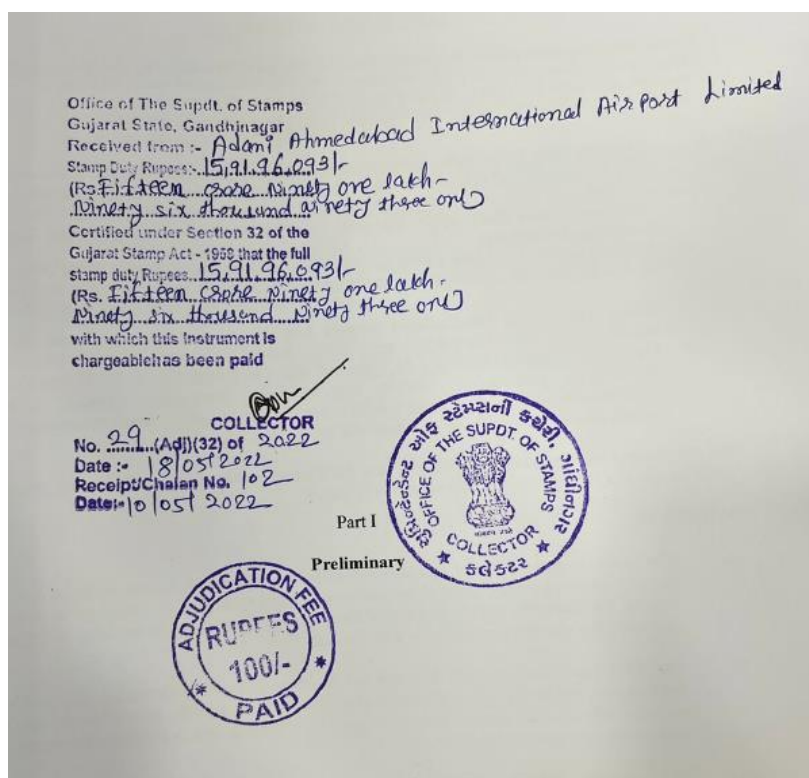 Office of The Supdt. of Stamps
Gujarat State, Gandhinagar
Received from :- Adani Ahmedabad International Airport Limited
Stamp Duty Rupees:- 15,91,96,093/-
(Rs Fifteen crore Ninety one lakh-
Ninety six thousand ninety three only)
Certified under Section 32 of the
Gujarat Stamp Act - 1958 that the full
stamp duty Rupees. 15,91,96,093/-
(Rs. Fifteen crore Ninety one lakh-
Ninety six thousand Ninety three only)
with which this instrument is
chargeablehas been paid
COLLECTOR
No. 29 (Adj)(32) of 2022
Date :- 18/05/2022
Receipt/Chalan No. 102
Date:- 10/05/2022
સુપ્રિટેન્ડેન્ટ ઓફ સ્ટેમ્પસની કચેરી, ગાંધીનગર
OFFICE OF THE SUPDT. OF STAMPS
COLLECTOR
કલેકટર
Part I
Preliminary
ADJUDICATION FEE
RUPEES
100/-
PAID